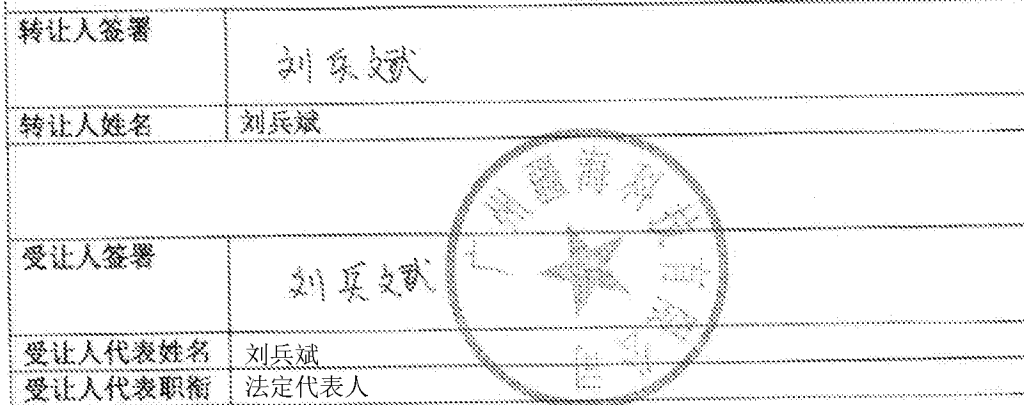 转让人签署
刘兵斌
转让人姓名 刘兵斌
受让人签署
刘兵斌
受让人代表姓名 刘兵斌
受让人代表职衔 法定代表人